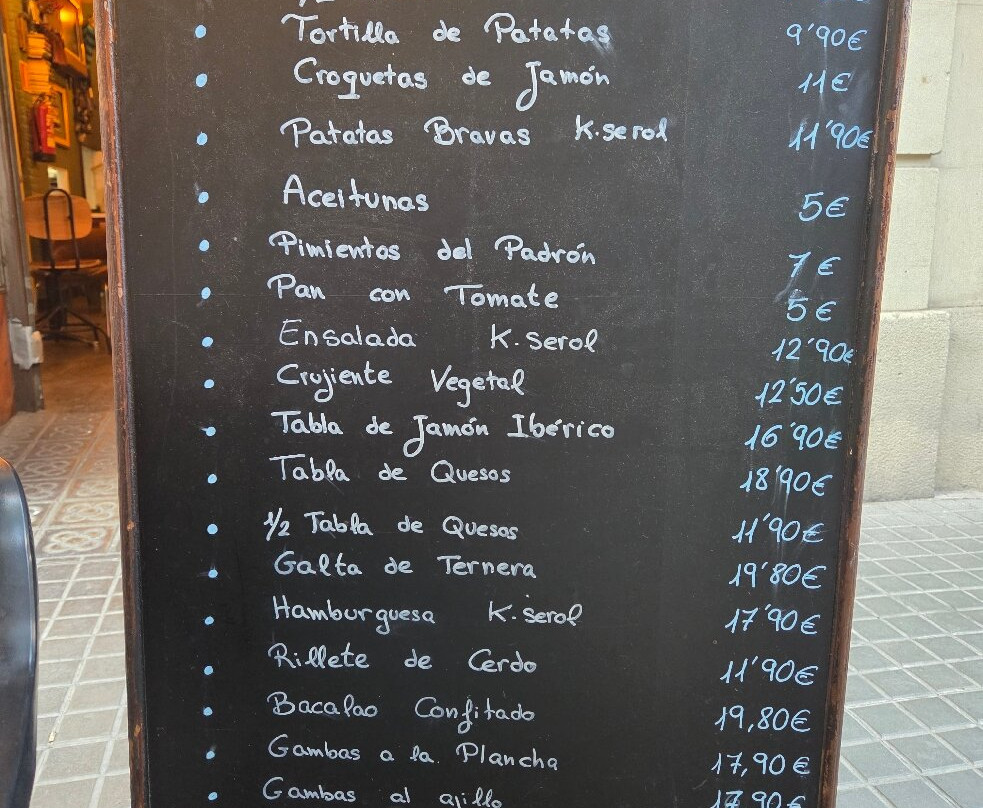 1/2
• Tortilla de Patatas 9'90€
• Croquetas de Jamón 11€
• Patatas Bravas K.serol 11'90€
• Aceitunas 5€
• Pimientos del Padrón 7€
• Pan con Tomate 5€
• Ensalada K.serol 12'90€
• Crujiente Vegetal 12'50€
• Tabla de Jamón Ibérico 16'90€
• Tabla de Quesos 18'90€
• 1/2 Tabla de Quesos 11'90€
• Galta de Ternera 19'80€
• Hamburguesa K.serol 17'90€
• Rillete de Cerdo 11'90€
• Bacalao Confitado 19,80€
• Gambas a la Plancha 17,90€
• Gambas al ajillo 17,90€